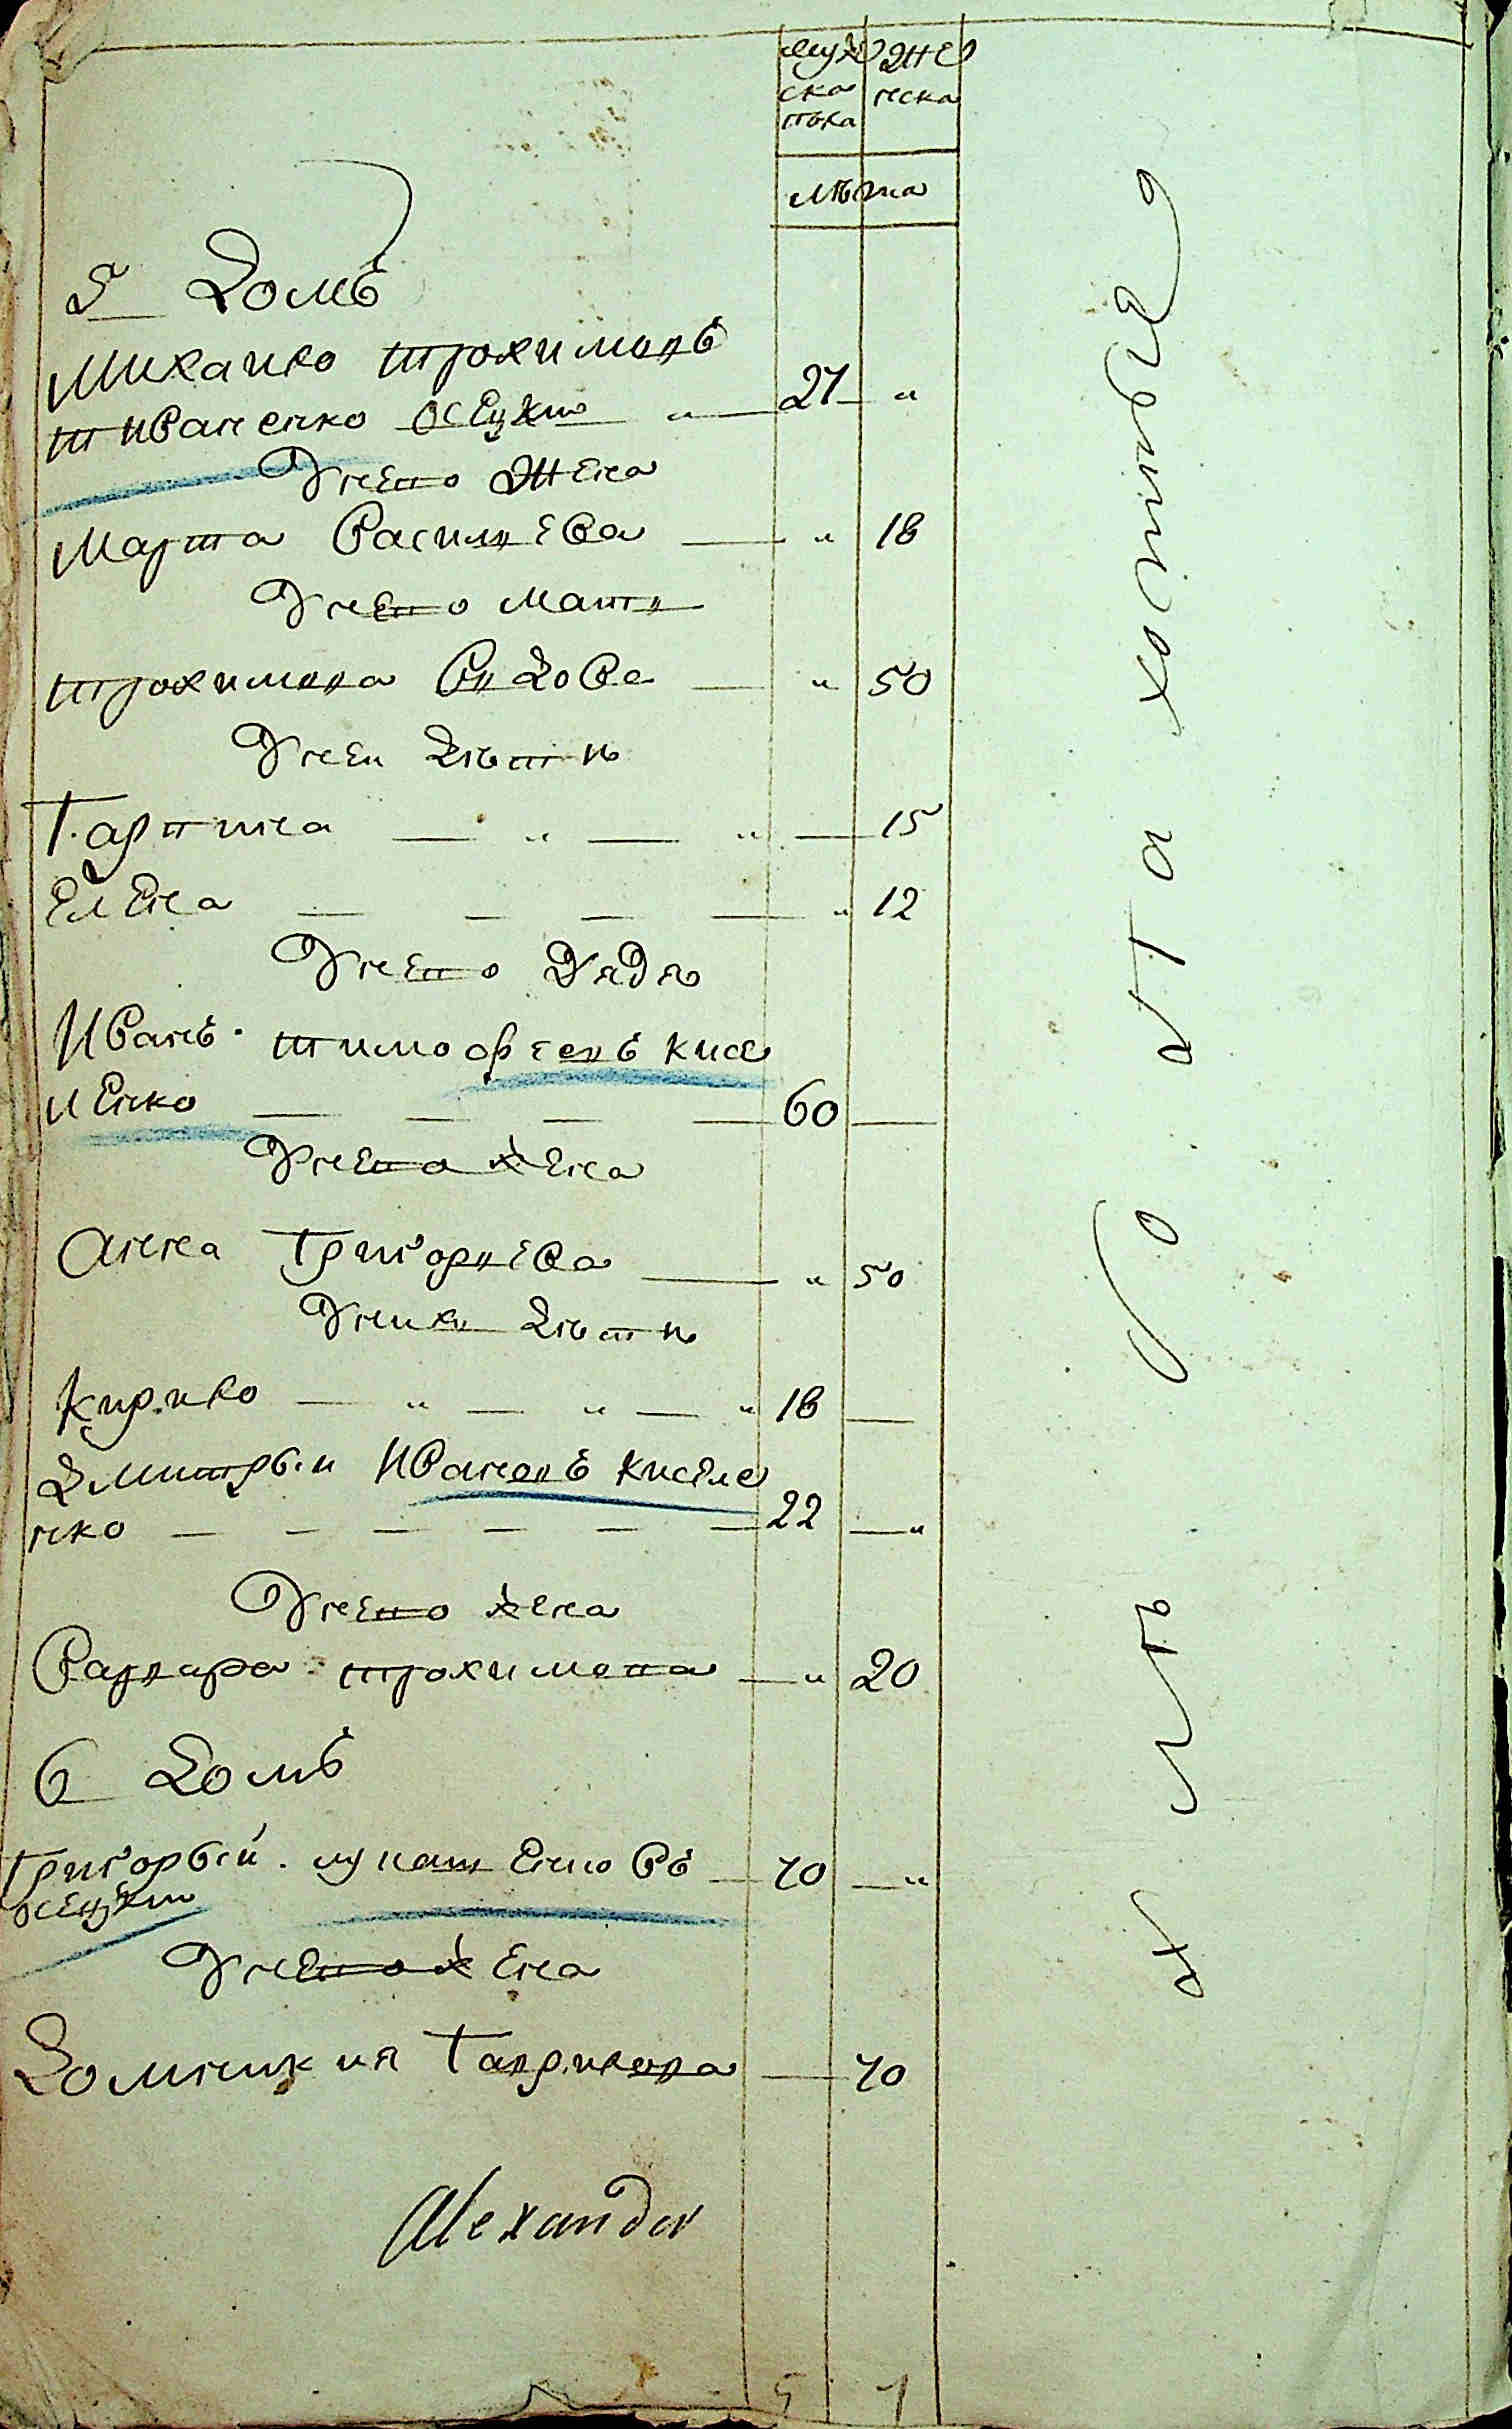 муж же
ска неска
пола
лѣта
5 Домъ
Михаило трохимовъ
тиваненко осецки „ 27 „
У него жена
Марта Василева „ 18
У него мати
трохимова вдова „ 50
У неи дѣти
Гарпина „ „ 15
Елена „ 12
У него дядя
Иванъ тимофеевъ кисе
ленко 60
У него жена
Анна Григориева „ 50
У них дѣти
Кирило „ „ „ 18
Дмитрый Ивановъ киселе
нко 22 „
У него жена
Варвара трохимова „ 20
6 Домъ
Григорый лукашенковъ 70 „
осецки
У него жена
Домникия Гаврилова 70
Alexander
5 7